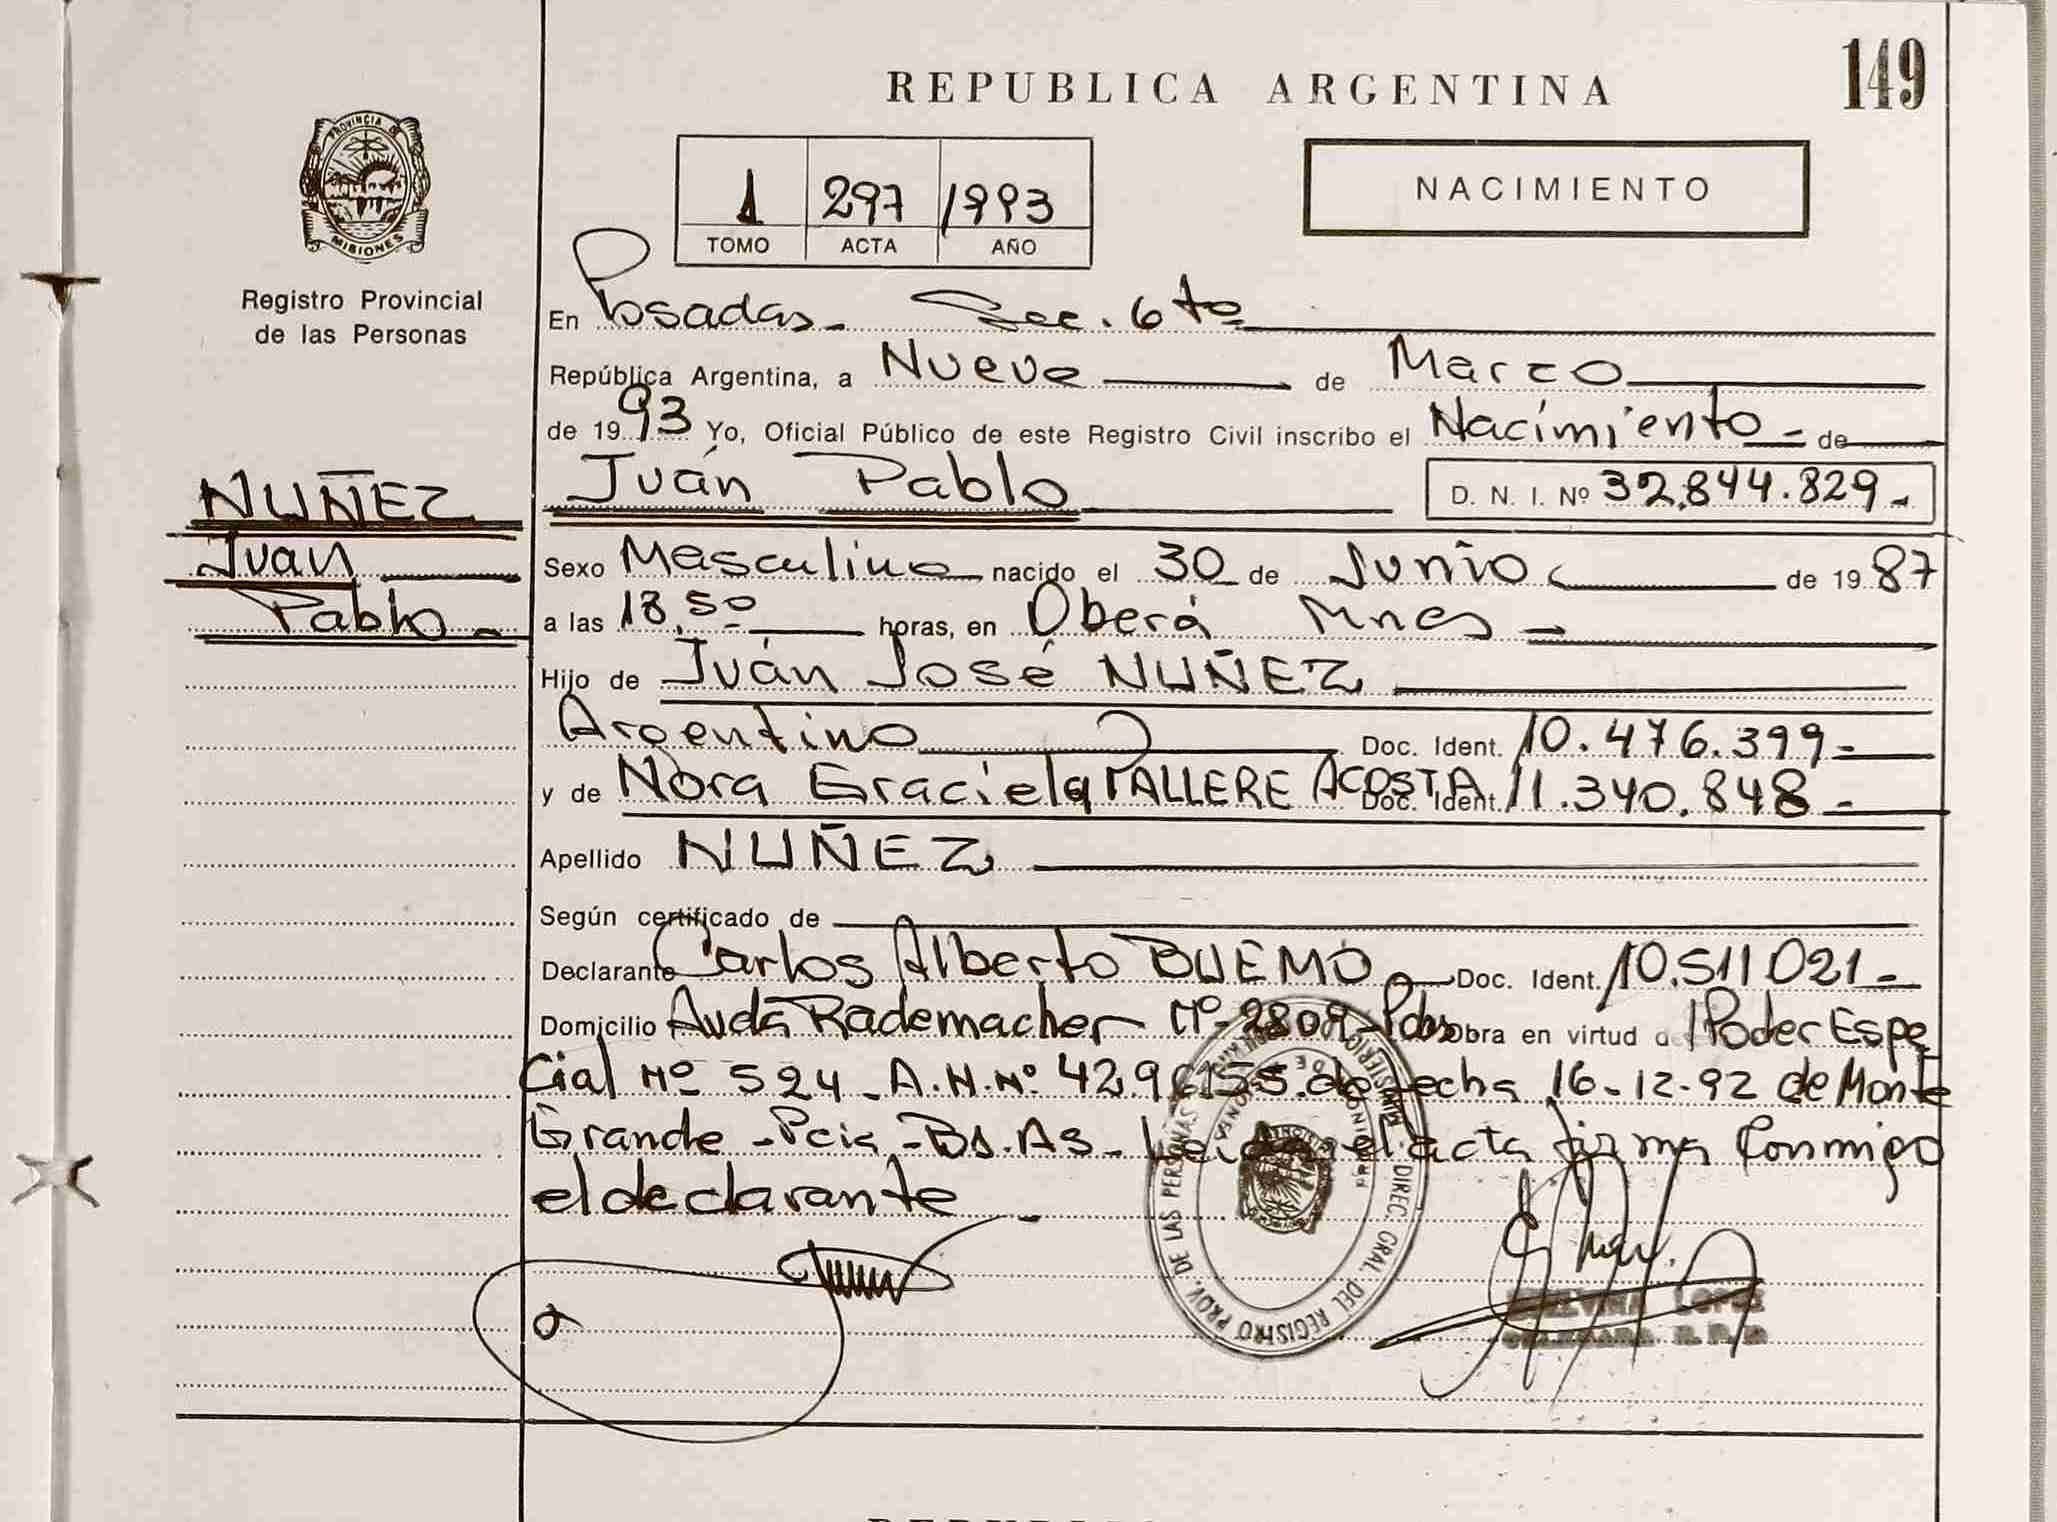 149
REPUBLICA ARGENTINA
NACIMIENTO
1 297 1993
TOMO ACTA AÑO
PROVINCIA DE
MISIONES
Registro Provincial
de las Personas
En Posadas - Sec. 6ta
República Argentina, a Nueve de Marzo
de 1993 Yo, Oficial Público de este Registro Civil inscribo el Nacimiento - de
Juán Pablo D. N. I. Nº 32.844.829 -
NUÑEZ
Juan
Pablo -
Sexo Masculino nacido el 30 de Junio de 1987
a las 18,50 horas, en Oberá Mnes -
Hijo de Juán José NUÑEZ
Argentino Doc. Ident. 10.476.399 -
y de Nora Graciela TALLERE ACOSTA Doc. Ident. 11.340.848 -
Apellido NUÑEZ
Según certificado de
Declarante Carlos Alberto BUEMO - Doc. Ident. 10.511021 -
Domicilio Avda Rademacher Nº 2809 - Pdas Obra en virtud a Poder Espe
cial Nº 524 - A.N.Nº de fecha 16-12-92 de Monte
Grande - Pcia - Bs.As - Leida el acta firma conmigo
el declarante -
DIREC. GRAL. DEL REGISTRO PROV. DE LAS PERSONAS
LOPEZ